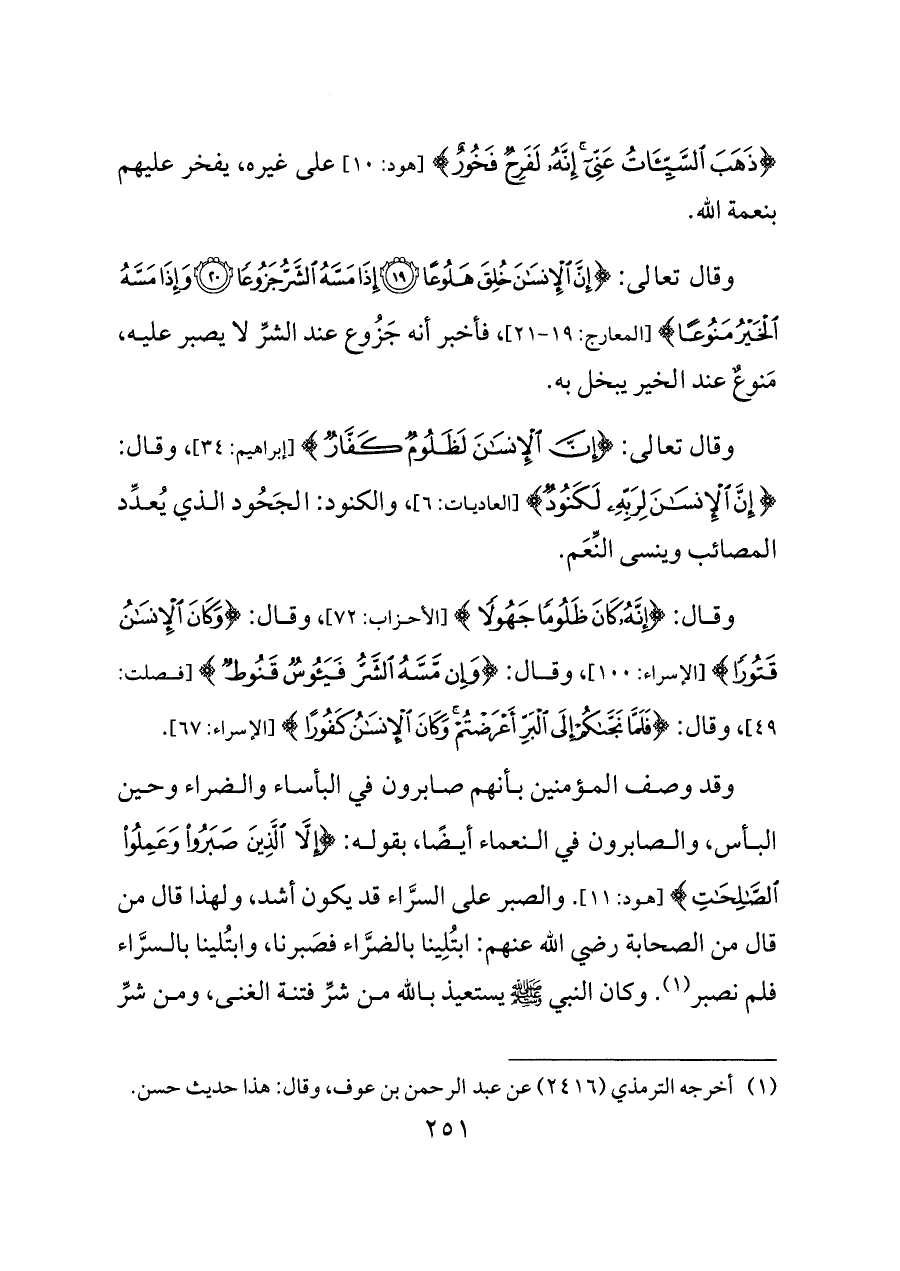 ﴿ذَهَبَ ٱلسَّيِّـَٔاتُ عَنِّيٓۚ إِنَّهُۥ لَفَرِحٞ فَخُورٌ﴾ [هود: ١٠] على غيره، يفخر عليهم
بنعمة الله.
وقال تعالى: ﴿إِنَّ ٱلْإِنسَٰنَ خُلِقَ هَلُوعًا ١٩ إِذَا مَسَّهُ ٱلشَّرُّ جَزُوعًا ٢٠ وَإِذَا مَسَّهُ
ٱلْخَيْرُ مَنُوعًا﴾ [المعارج: ١٩-٢١]، فأخبر أنه جَزُوع عند الشرِّ لا يصبر عليه،
مَنوعٌ عند الخير يبخل به.
وقال تعالى: ﴿إِنَّ ٱلْإِنسَٰنَ لَظَلُومٞ كَفَّارٞ﴾ [إبراهيم: ٣٤]، وقال:
﴿إِنَّ ٱلْإِنسَٰنَ لِرَبِّهِۦ لَكَنُودٞ﴾ [العاديات: ٦]، والكنود: الجَحُود الذي يُعدِّد
المصائب وينسى النِّعَم.
وقال: ﴿إِنَّهُۥ كَانَ ظَلُومٗا جَهُولٗا﴾ [الأحزاب: ٧٢]، وقال: ﴿وَكَانَ ٱلْإِنسَٰنُ
قَتُورٗا﴾ [الإسراء: ١٠٠]، وقال: ﴿وَإِن مَّسَّهُ ٱلشَّرُّ فَيَـُٔوسٞ قَنُوطٞ﴾ [فصلت:
٤٩]، وقال: ﴿فَلَمَّا نَجَّىٰكُمْ إِلَى ٱلْبَرِّ أَعْرَضْتُمْۚ وَكَانَ ٱلْإِنسَٰنُ كَفُورًا﴾ [الإسراء: ٦٧].
وقد وصف المؤمنين بأنهم صابرون في البأساء والضراء وحين
البأس، والصابرون في النعماء أيضًا، بقوله: ﴿إِلَّا ٱلَّذِينَ صَبَرُوا۟ وَعَمِلُوا۟
ٱلصَّٰلِحَٰتِ﴾ [هود: ١١]. والصبر على السرَّاء قد يكون أشد، ولهذا قال من
قال من الصحابة رضي الله عنهم: ابتُلِينا بالضرَّاء فصَبرنا، وابتُلينا بالسرَّاء
فلم نصبر(١). وكان النبي ﷺ يستعيذ بالله من شرِّ فتنة الغنى، ومن شرِّ
(١) أخرجه الترمذي (٢٤١٦) عن عبد الرحمن بن عوف، وقال: هذا حديث حسن.
٢٥١